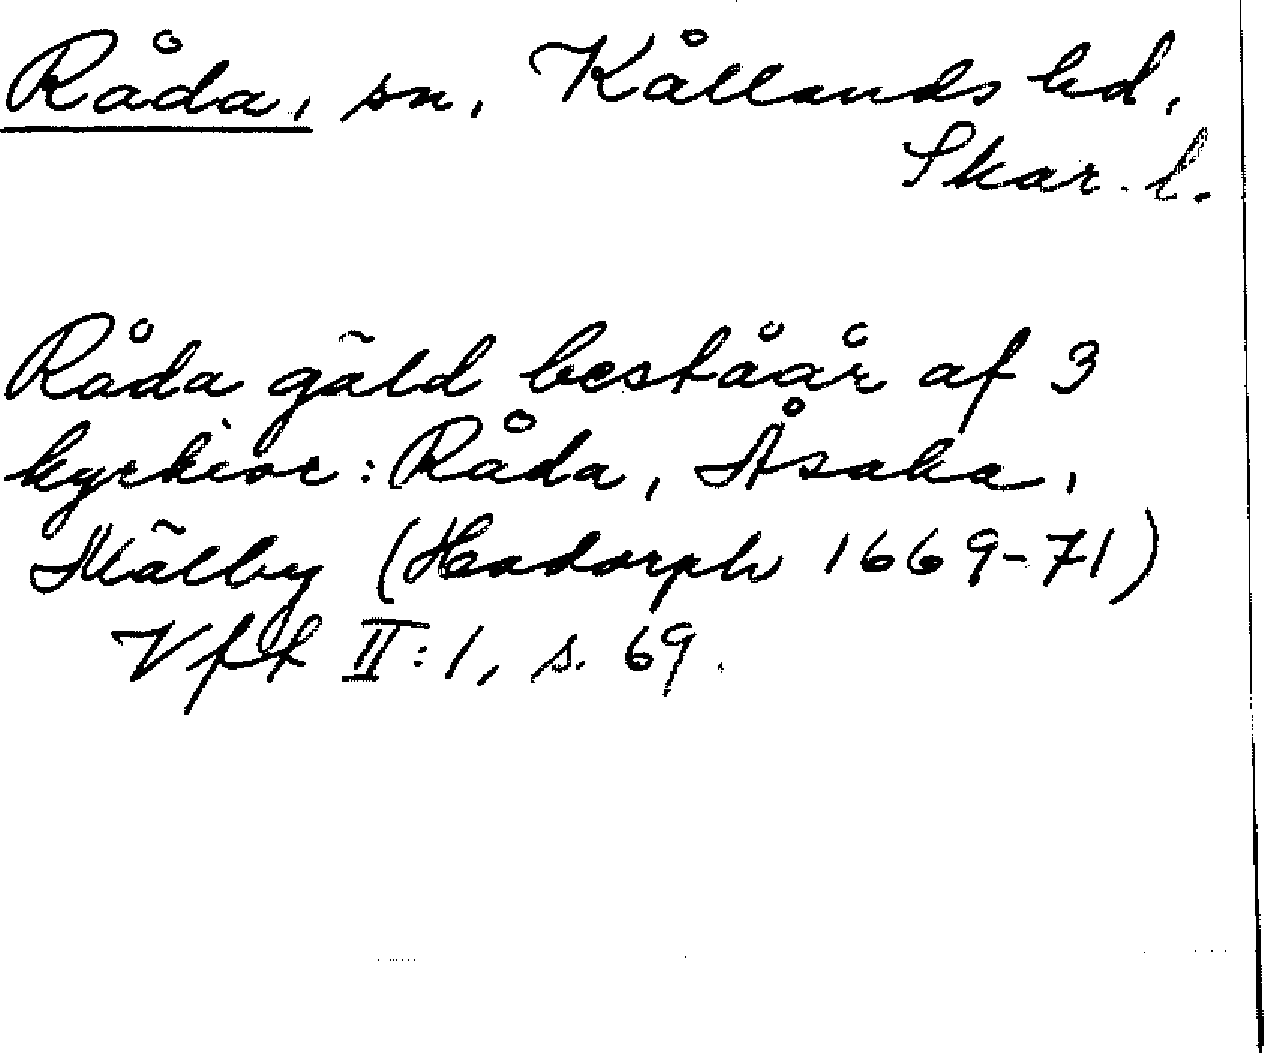 Råda, sn, Kållands hd,
Skar. l.
Råda gäld beståår af 3
kyrkior: Råda, Åsaka,
Mälby (Hadorph 1669-71)
Vfft II:1, s. 69.